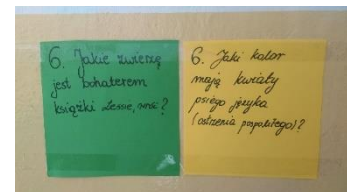 6. Jakie zwierzę
jest bohaterem
książki „Lessie, wróć"?
6. Jaki kolor
mają kwiaty
psiego języka
(ostrzenia pospolitego)?